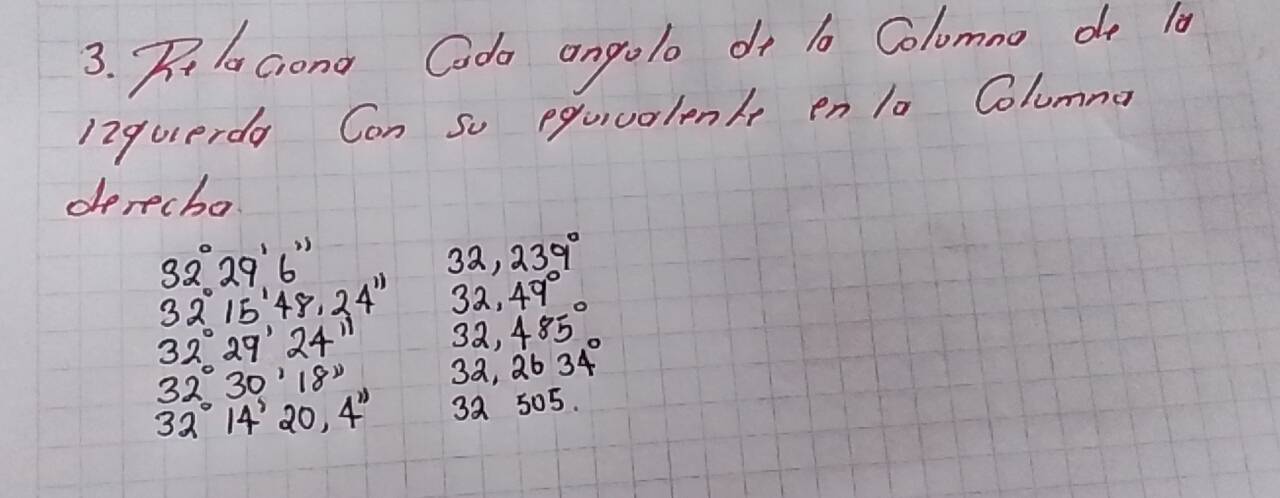 3. Relaciona Cada angulo de la Columna de la
izquierda Con su equivalente en la Columna
derecha.
32° 29' 6"	32,239°
32° 15' 48,24"	32,49°
32° 29' 24"	32,485°
32° 30' 18"	32,2634°
32° 14' 20,4"	32 505.